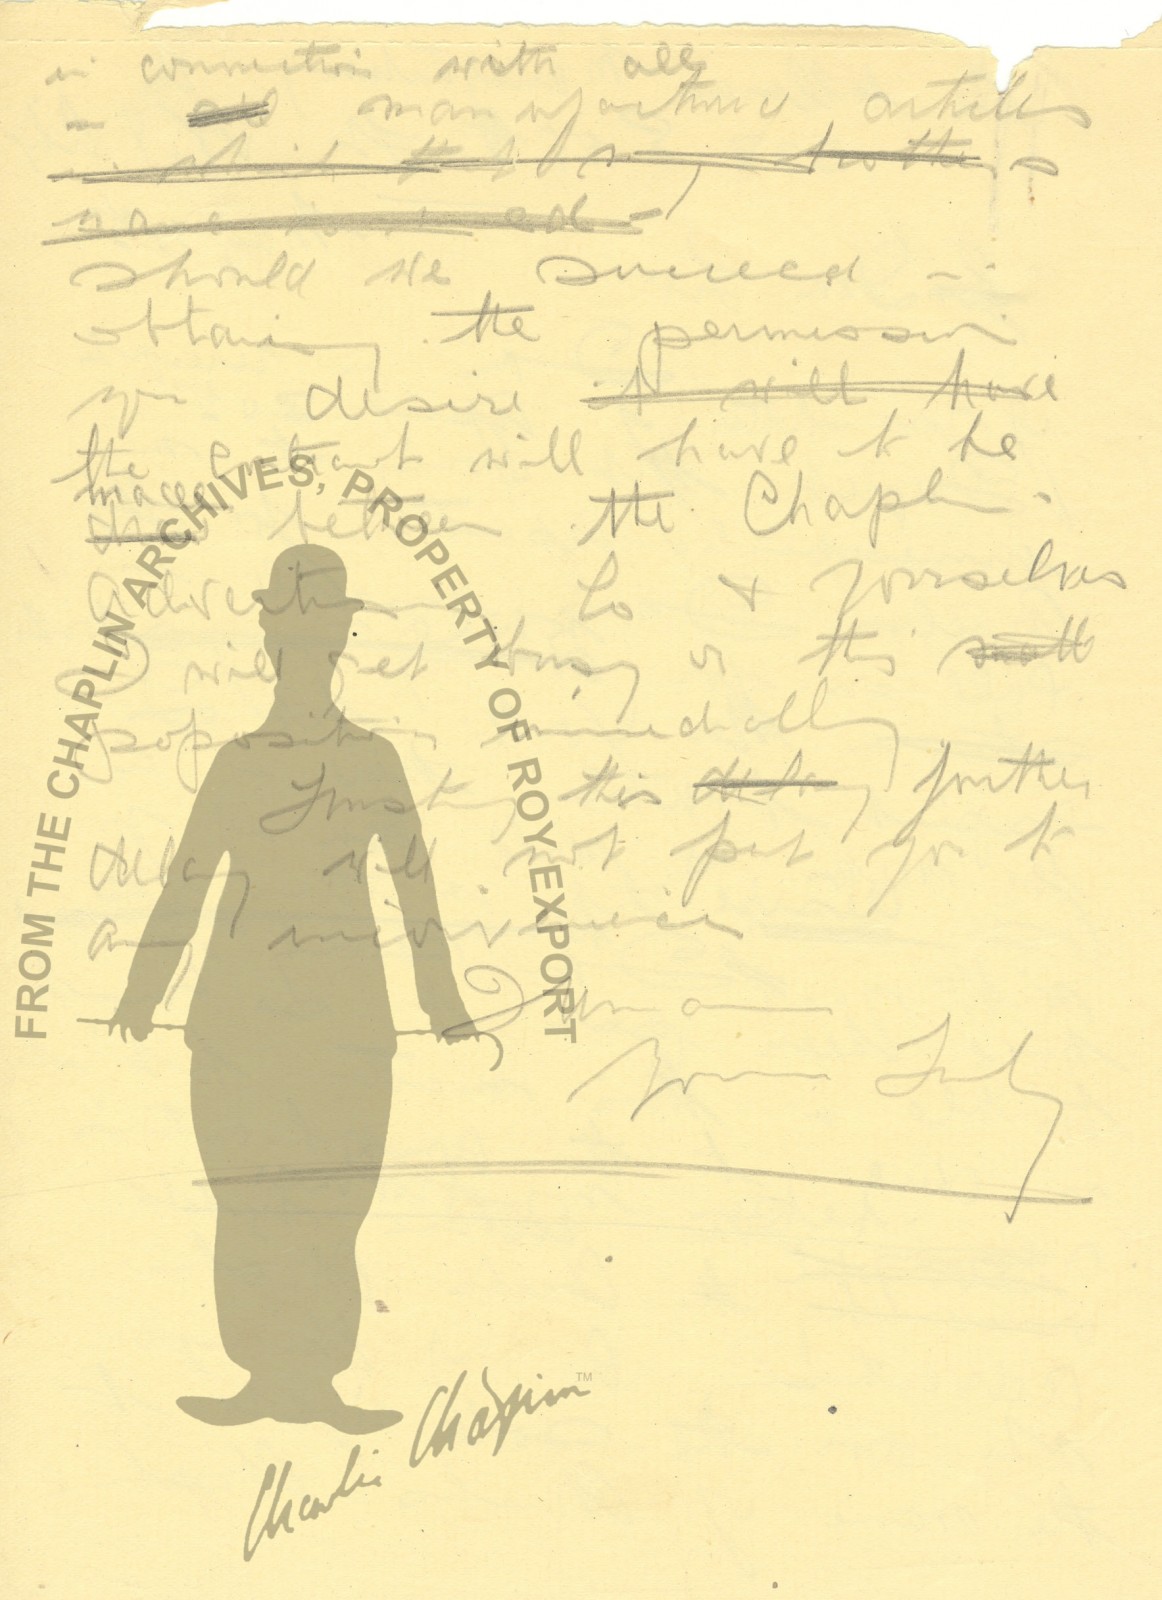 in connection with all
- all manufactured articles
in which that my brothers
name is used -
should we succeed -
obtaining the permission
you desire it will have
the Contract will have to be
made
drew between the Chaplin
Advertising Co & yourselves
I will get busy on this small
proposition immediatly
Trusting this delay further
delay will not put you to
any inconvenience
I remain
Yours Truly
FROM THE CHAPLIN ARCHIVES, PROPERTY OF ROY EXPORT
Charlie Chaplin TM